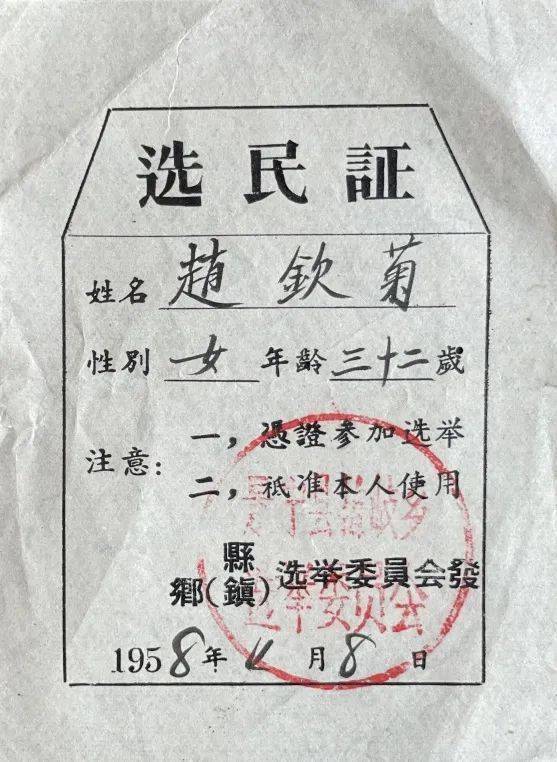 选民証
姓名 趙欽菊
性別 女 年齡 三十二 歲
注意：
一，憑證參加选举
二，祗准本人使用
縣
鄉(鎮)选举委員会發
1958年11月8日
选举委员会